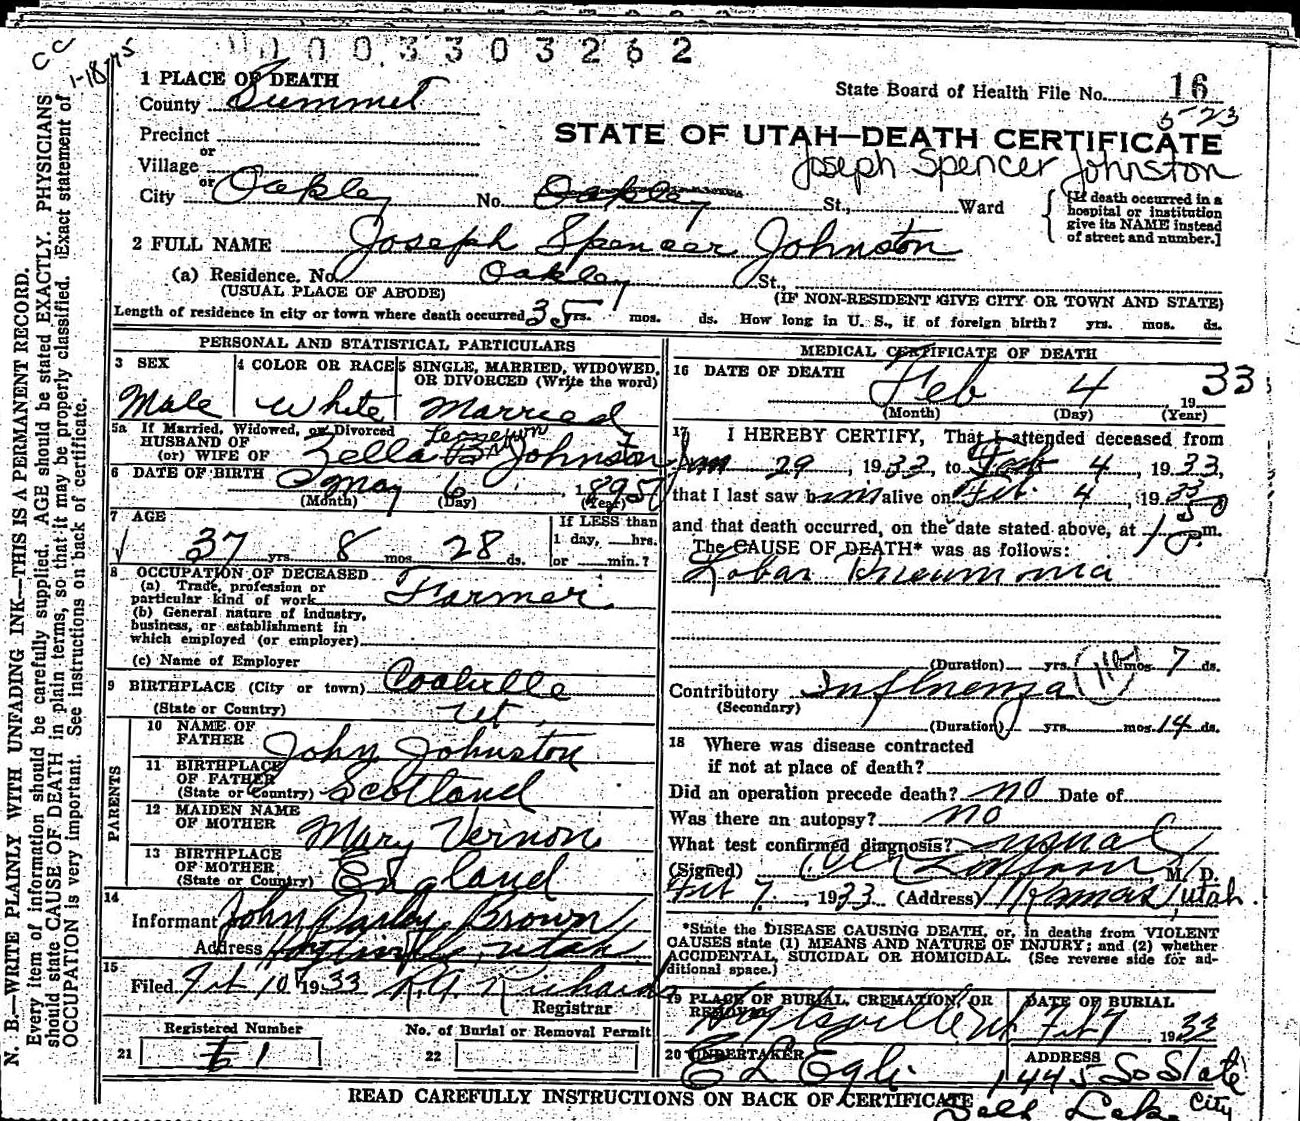 0003303262
CC
1-18-45
1 PLACE OF DEATH
County Summit
State Board of Health File No. 16
5-23
Precinct
or
Village
or
STATE OF UTAH—DEATH CERTIFICATE
Joseph Spencer Johnston
City Oakley No. Oakley St., Ward
[If death occurred in a hospital or institution give its NAME instead of street and number.]
2 FULL NAME Joseph Spencer Johnston
(a) Residence, No. Oakley St.,
(USUAL PLACE OF ABODE) (IF NON-RESIDENT GIVE CITY OR TOWN AND STATE)
Length of residence in city or town where death occurred 35 yrs. mos. ds. How long in U. S., if of foreign birth? yrs. mos. ds.
PERSONAL AND STATISTICAL PARTICULARS
3 SEX
Male
4 COLOR OR RACE
White
5 SINGLE, MARRIED, WIDOWED, OR DIVORCED (Write the word)
Married
5a If Married, Widowed, or Divorced
HUSBAND OF
(or) WIFE OF Zella Johnston
6 DATE OF BIRTH May 6, 1895
(Month) (Day) (Year)
7 AGE
37 yrs. 8 mos. 28 ds.
If LESS than
1 day, hrs.
or min.?
8 OCCUPATION OF DECEASED
(a) Trade, profession or
particular kind of work Farmer
(b) General nature of Industry,
business, or establishment in
which employed (or employer)
(c) Name of Employer
9 BIRTHPLACE (City or town) Coalville
(State or Country) Ut.
PARENTS
10 NAME OF
FATHER John Johnston
11 BIRTHPLACE
OF FATHER
(State or Country) Scotland
12 MAIDEN NAME
OF MOTHER Mary Vernon
13 BIRTHPLACE
OF MOTHER
(State or Country) England
14
Informant John Parley Brown
Address Hoytsville, Utah
15
Filed Feb 10 1933 R.A. Richards
Registrar
Registered Number
21 1
No. of Burial or Removal Permit
22
MEDICAL CERTIFICATE OF DEATH
16 DATE OF DEATH
Feb 4 1933
(Month) (Day) (Year)
17 I HEREBY CERTIFY, That I attended deceased from
Jan 29, 1933, to Feb 4, 1933,
that I last saw him alive on Feb. 4, 1933
and that death occurred, on the date stated above, at m.
The CAUSE OF DEATH* was as follows:
Lobar Pneumonia
(Duration) yrs. mos. 7 ds.
Contributory Influenza
(Secondary)
(Duration) yrs. mos. 14 ds.
18 Where was disease contracted
if not at place of death?
Did an operation precede death? no Date of
Was there an autopsy? no
What test confirmed diagnosis? usual
(Signed) M. D.
Feb 7, 1933 (Address) Kamas, Utah.
*State the DISEASE CAUSING DEATH, or, in deaths from VIOLENT
CAUSES state (1) MEANS AND NATURE OF INJURY; and (2) whether
ACCIDENTAL, SUICIDAL OR HOMICIDAL. (See reverse side for ad-
ditional space.)
19 PLACE OF BURIAL, CREMATION, OR REMOVAL
Hoytsville Ut
DATE OF BURIAL
Feb 7 1933
20 UNDERTAKER
E L Egli
ADDRESS
1445 So State
Salt Lake City
READ CAREFULLY INSTRUCTIONS ON BACK OF CERTIFICATE
N. B.—WRITE PLAINLY WITH UNFADING INK—THIS IS A PERMANENT RECORD.
Every item of information should be carefully supplied. AGE should be stated EXACTLY. PHYSICIANS
should state CAUSE OF DEATH in plain terms, so that it may be properly classified. Exact statement of
OCCUPATION is very important. See instructions on back of certificate.